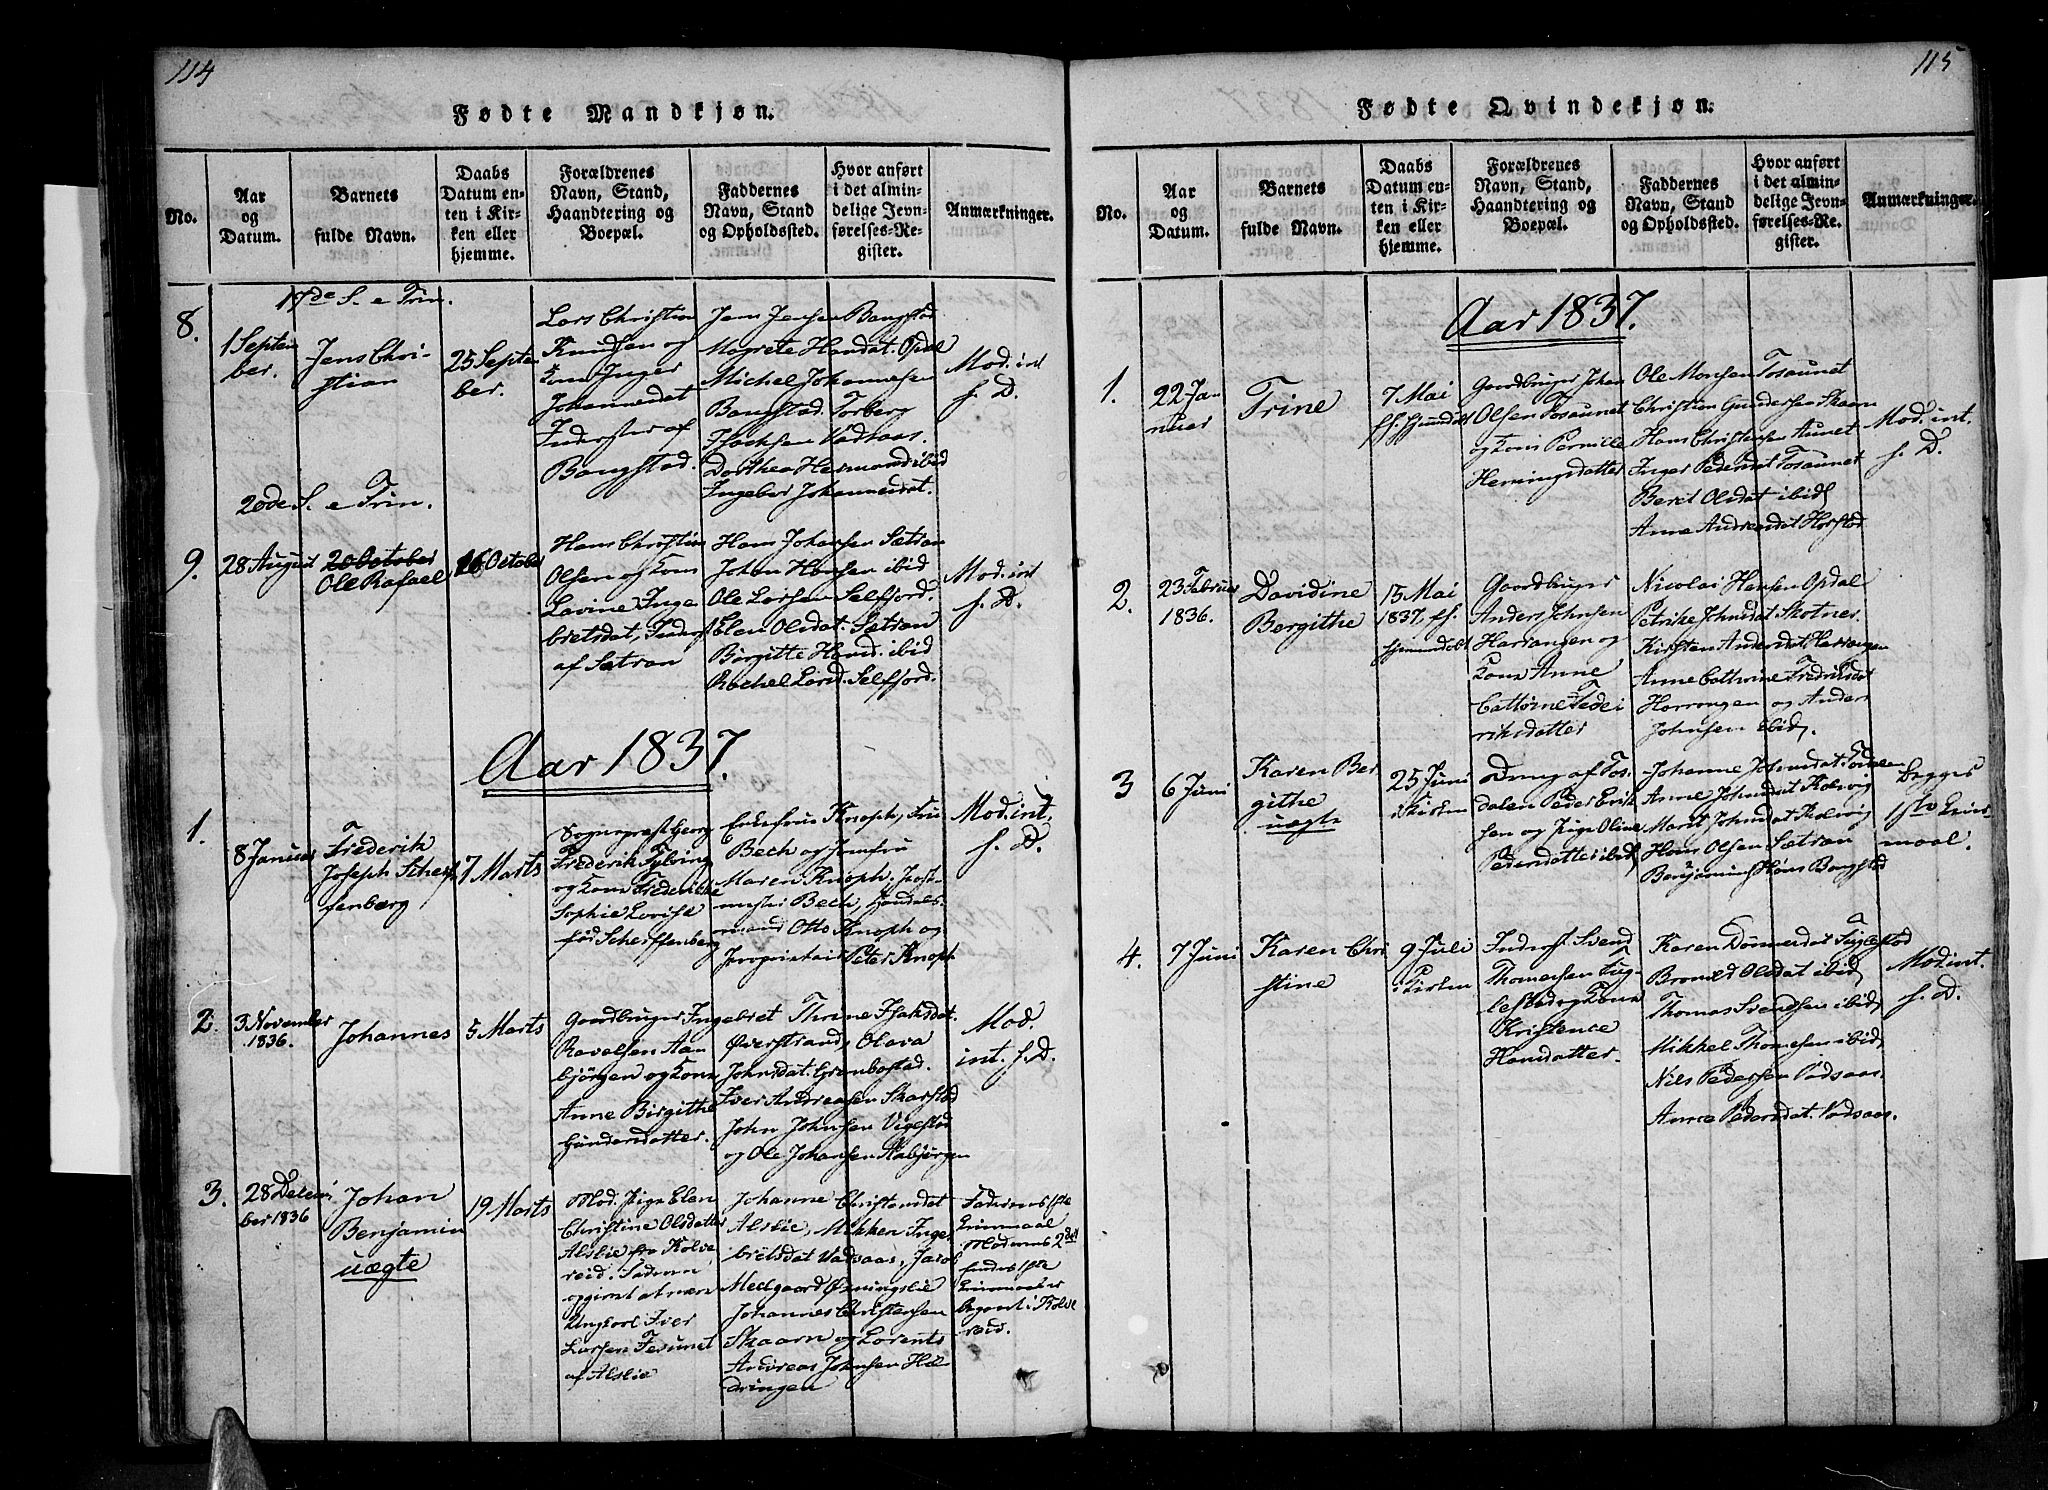 114
Fødte Mandkjøn.
No.
Aar
og
Datum.
Barnets
fulde Navn.
Daabs
Datum en-
ten i Kir-
ken eller
hjemme.
Forældrenes
Navn, Stand,
Haandtering og
Boepæl.
Faddernes
Navn, Stand
og Opholdssted.
Hvor anført
i det almin-
delige Jevn-
førelses-Re-
gister.
Anmærkninger.
17de S. e Trin.
8.
1 Septem
ber.
Jens Chri-
stian
25 Septe
ber.
Lars Christian
Knudsen og
Kone Inger
Johannesdat
Inderster af
Bangstad.
Jens Jensen Bangstad
Magrete Hansdat. Opdal
Michel Johannesen
Bangstad. Torberg
Isachsen Vadsaas.
Dorthea Hermansd ibid
Ingeber Johannesdat.
Mod. int
f. D.
20de S. e Trin.
9.
28 August
20 October
Ole Rafael
16 October
Hans Christian
Olsen og Kone
Lavine Inge
bretsdat, Inderst
af Sætran
Hans Johansen Sætran
Johan Hansen ibid
Ole Larsen Selfjord.
Elen Olsdat. Sætran
Birgitte Hansd. ibid
Rachel Larsd. Selfjord.
Mod. int
f. D.
Aar 1837.
1.
8 Januar
Frederik
Joseph Scherf
fenberg
7 Marts
Sognepræst Georg
Frederik
og Kone Frederikke
Sophie Lovise
fød Scherffenberg
Enkefrue Knoph, Frue
Bech og Jomfru
Maren Knoph. Post-
mester Bech, Handels-
mand Otto Knoph og
Proprietair Peter Knoph
Mod. int.
f. D.
2.
3 November
1836.
Johannes
5 Marts
Gaardbruger Ingebret
Ravelsen Aan
bjørgen og Kone
Anne Birgithe
Gundersdatter.
Thrine Isaksdat.
Øverstrand, Olava
Johnsdat. Grønbostad.
Iver Andreasen Skarstad
John Johnsen Vigestad
og Ole Johansen Aabjørgen
Mod.
int. f. D.
3.
28 Decem
ber 1836
Johan
Benjamin
uægte
19 Marts
Mod. Pige Elen
Christine Olsdatter
Alslie fra Kolve
reid. Faderen
opgivet at være
Ungkarl Iver
Larsen
af Alslie
Johanne Christensdat
Alslie, Mikken Inge
bretsdat Vadsaas, Jacob
Medgaard
Johannes Christensen
Skaarn og Lorents
Andreas Johnsen Hæ-
dringen
Faderens 1ste
Leiermaal
Moderens 2det
hendes 1ste
Leiermaal er
begaaet i Kolve
reid.
115
Fødte Qvindekjøn.
No.
Aar
og
Datum.
Barnets
fulde Navn.
Daabs
Datum en-
ten i Kir-
ken eller
hjemme.
Forældrenes
Navn, Stand,
Haandtering og
Boepæl.
Faddernes
Navn, Stand
og Opholdssted.
Hvor anført
i det almin-
delige Jevn-
førelses-Re-
gister.
Anmærkninger.
Aar 1837.
1.
22 Ja
nuar
Trine
7 Mai
Gaardbruger Johan
Olsen Tosaunet
og Kone Pernille
Henningsdatter
Ole Monsen Tosaunet
Christian Gundersen Skaarn
Hans Christensen Aunet
Inger Pedersdat Tosaunet
Beret Olsdat ibid
Anne Andreasdat Horstad
Mod. int.
f. D.
2.
23 Februar
1836.
Davidine
Bergithe
15 Mai
1837.
Gaardbruger
Anders Johnsen
Harrangen og
Kone Anne
Cathrine Fride
riksdatter
Nicolai Hansen Opdal
Petrike Johnsdat Skotnes.
Kirsten Andersdat Harrangen
Anne Cathrine Fredriksdat
Horrangen og Anders
Johnsen ibid.
3
6 Juni
Karen Ber
githe
uægte
25 Juni
i Kirken
Dreng af Tos-
dalen Peder Erik
sen og Pige Oline
Pedersdatter ibid
Johanne Johnsdat Tosdalen
Anne Johnsdat Kolvig
Marit Johnsdat Kolvig
Hans Olsen Sætran
Benjamin Hans Bangstad
Begges
1ste Leier
maal.
4.
7 Juni
Karen Chri
stine
9 Juli
i Kirken
Inderst Svend
Thomesen Fug-
lestad og Kone
Kristence
Hansdatter.
Karen Dønnesdat Fuglestad
Broneld Olsdat ibid
Thomas Svendsen ibid
Mikkel Thomesen ibid
Nils Pedersen Vadsaas.
Anne Pedersdat. Vadsaas.
Mod. int.
f. D.